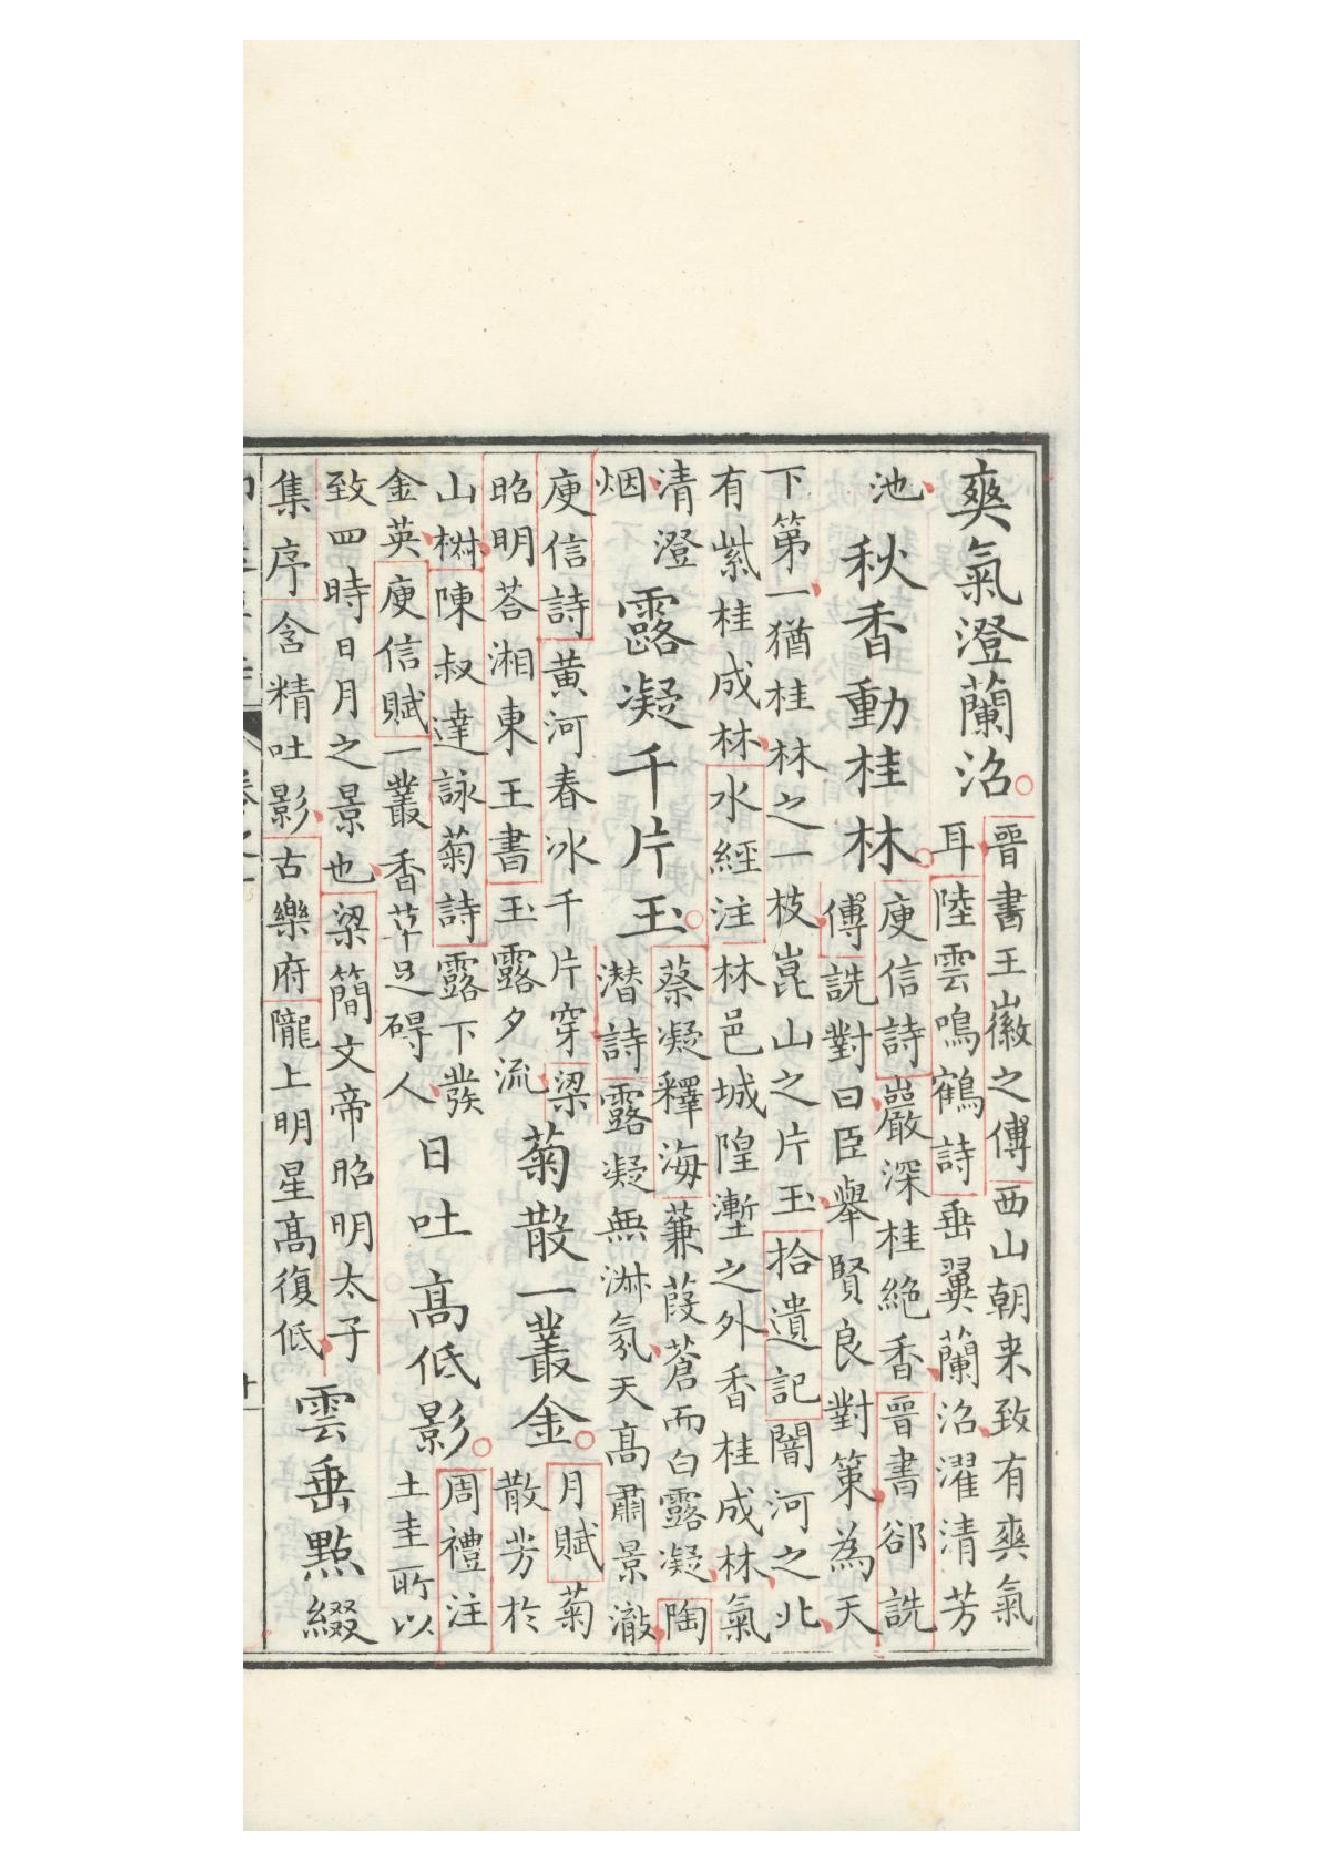 爽氣澄蘭沼。
晉書王徽之傅西山朝来致有爽氣
耳陸雲鳴鶴詩垂翼蘭沼濯清芳
池
秋香動桂林。
庾信詩巖深桂絶香晉書郤詵
傅詵對曰臣舉賢良對策為天
下第一猶桂林之一枝崑山之片玉拾遺記闇河之北
有紫桂成林水經注林邑城隍塹之外香桂成林氣
清澄
烟
露凝千片玉。
蔡凝釋海蒹葭蒼而白露凝陶
潜詩露凝無淋氛天髙肅景澈
庾信詩黄河春冰千片穿梁
昭明荅湘東王書玉露夕流
菊散一叢金。
月賦菊
散芳於
山椒陳叔達詠菊詩露下發
金英庾信賦一叢香草足碍人
日吐髙低影。
周禮注
土圭所以
致四時日月之景也梁簡文帝昭明太子
集序含精吐影古樂府隴上明星髙復低
雲垂點綴